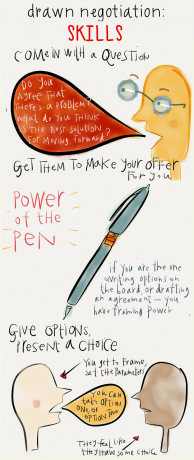 drawn negotiation:
SKILLS
COME IN WITH A QUESTION
Do you
AGREE THAT
THERE'S A PROBLEM?
What do you THINK
is the BEST Solution
FOR MOVING FORWARD?
GET THEM TO MAKE YOUR OFFER
FOR YOU
POWER
OF THE
PEN
if you are the one
writing options on
the board, or drafting
an agreement — you
have framing power
GIVE OPTIONS,
PRESENT A CHOICE
You get to frame,
set the parameters
YOU CAN
take OPTION
ONE or OPTION TWO
THEY feel like
they have some choice